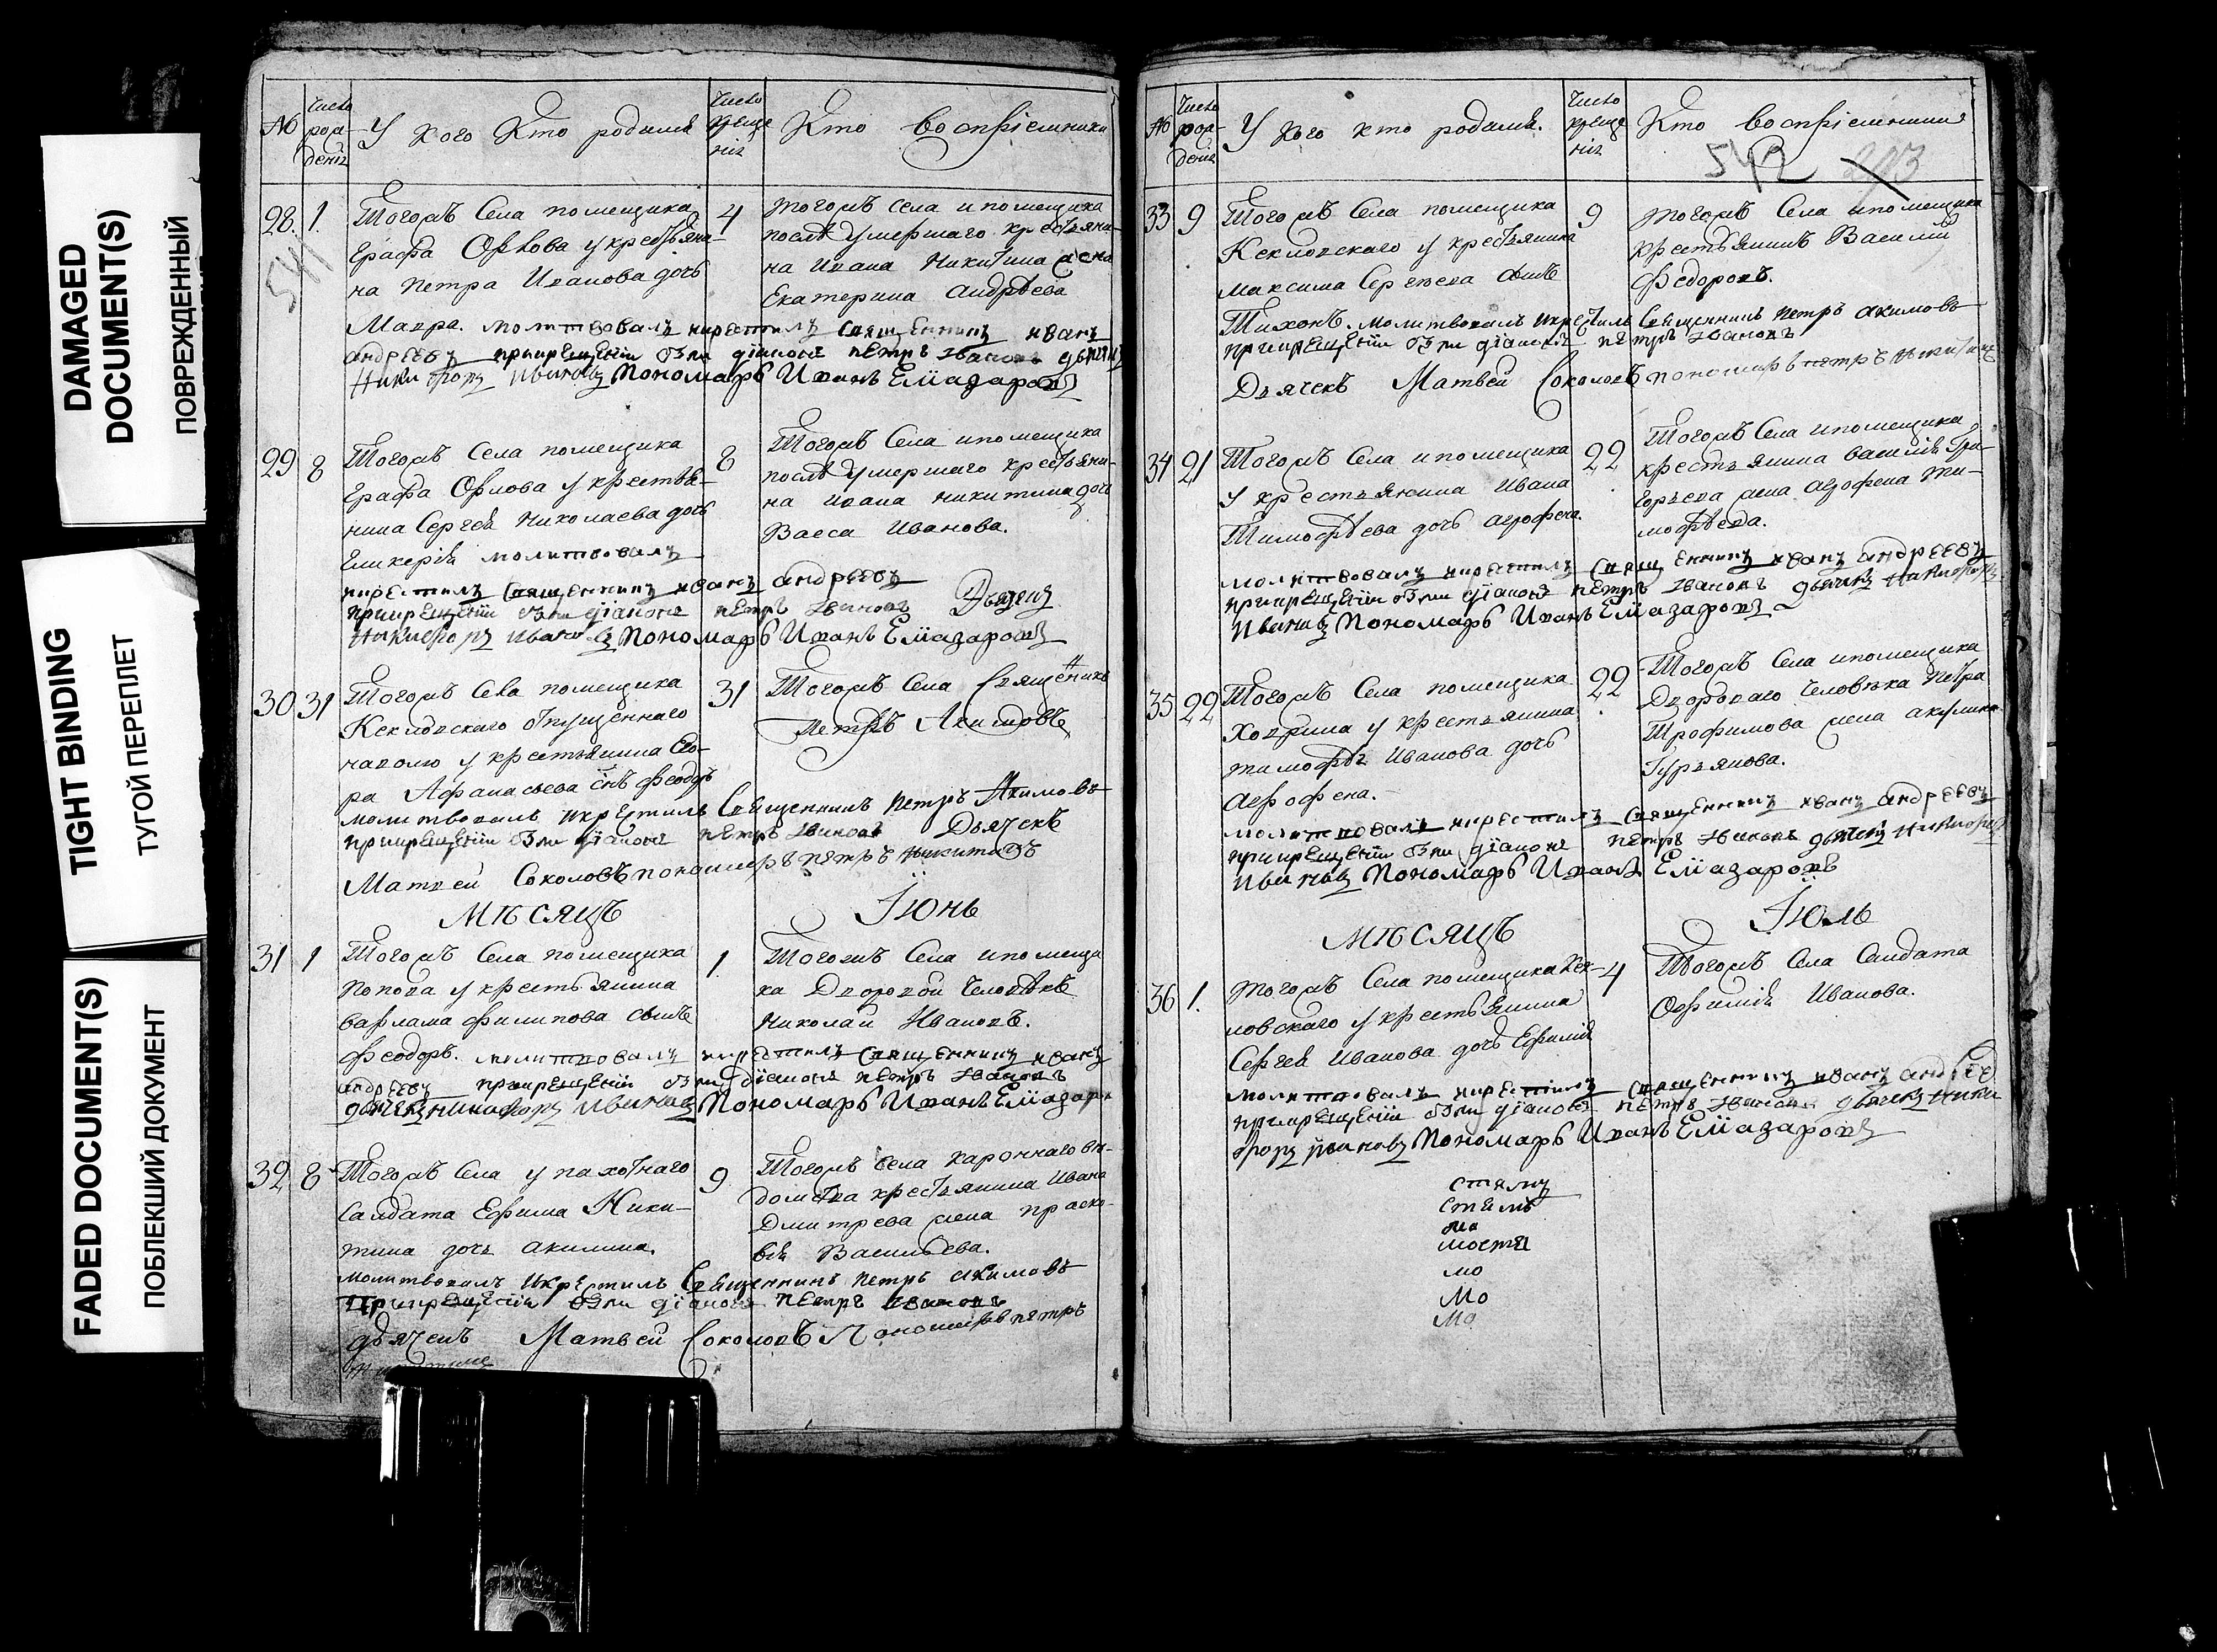 DAMAGED
DOCUMENT(S)
ПОВРЕЖДЕННЫЙ
TIGHT BINDING
ТУГОЙ ПЕРЕПЛЕТ
FADED DOCUMENT(S)
ПОБЛЕКШИЙ ДОКУМЕНТ
№
Число рожденія
У кого Кто родился
Число крещенія
Кто воспріемники
541
28. 1.
Тогожъ Села помещика
Графа Орлова у крестьяни-
на Петра Иванова дочь
Мавра. молитвовалъ икрестилъ священникъ иванъ
андреевъ прикрещеніи были діаконъ петръ Ивановъ дьячекъ
Никифоръ Ивановъ Пономарь Иванъ Елиазаровъ
4
тогожъ села ипомещика
послѣ умершаго крестьяни-
на Ивана Никитина жена
Екатерина Андрѣева
29 8
Тогожъ Села помещика
Графа Орлова у крестья-
нина Сергея Николаева дочь
Гликерія молитвовалъ
икрестилъ священникъ иванъ андреевъ
прикрещеніи были діаконъ петръ Ивановъ Дьячекъ
Никифоръ Ивановъ Пономарь Иванъ Елиазаровъ
8
Тогожъ Села ипомещика
послѣ умершаго крестьяни-
на Ивана никитина дочь
Васса Иванова.
30 31
Тогожъ Села помещика
Кекловскаго отпущеннаго
наволю у крестьянина Его-
ра Афанасьева снъ феодоръ
молитвовалъ икрестилъ Священникъ Петръ Акимовъ
прикрещеніи были діаконъ петръ Ивановъ Дьячекъ
Матвей Соколовъ пономарь петръ никитинъ
31
Тогожъ Села Священникъ
Петръ Акимовъ
МѢСЯЦЪ Іюнь
31 1
Тогожъ Села помещика
Попова у крестьянина
варлама филипова сынъ
Феодоръ. молитвовалъ икрестилъ священникъ иванъ
андреевъ прикрещеніи были діаконъ петръ Ивановъ
дьячекъ никифоръ Ивановъ Пономарь Иванъ Елиазаров
1.
Тогожъ Села ипомещи
ка Дворовой человѣкъ
Николай Ивановъ.
32 8
Тогожъ Села у пахотнаго
Салдата Ефима Ники-
тина дочь акилина.
молитвовалъ Икрестилъ Священникъ петръ акимовъ
Прикрещеніи были діаконъ петръ Ивановъ
дьячекъ Матвей Соколовъ Пономарь петръ
9
Тогожъ Села
крестьянина Ивана
Дмитрева жена праско-
вья Васильева.
№
Число рожденія
У кого кто родился.
Число крещенія
Кто воспріемники
542
33 9
Тогожъ Села помещика
Кекловскаго у крестьянина
Максима Сергеева сынъ
Тихонъ. Молитвовалъ Икрестилъ Священникъ Петръ акимовъ
прикрещеніи были діаконъ петръ Ивановъ
Дьячекъ Матвей Соколовъ пономарь петръ никитинъ
9
тогожъ Села ипомещика
крестьянинъ Василій
Федоровъ.
34 21
Тогожъ Села ипомещика
у крестьянина Ивана
Тимофѣева дочь агрофена.
молитвовалъ икрестилъ священникъ иванъ андреевъ
прикрещеніи были діаконъ петръ Ивановъ дьячекъ Никифоръ
Ивановъ Пономарь Иванъ Елиазаровъ
22
Тогожъ Села ипомещика
крестьянина василія Гри-
горьева жена агрофена Ти-
мофѣева.
35 22
Тогожъ Села помещика
Ховрина у крестьянина
тимофѣя Иванова дочь
агрофена.
молитвовалъ икрестилъ священникъ иванъ андреевъ
прикрещеніи были діаконъ петръ Ивановъ дьячекъ Никифоръ
Ивановъ Пономарь Иванъ Елиазаровъ
22
Тогожъ Села ипомещика
Двороваго человѣка Петра
Трофимова жена акулина
Гурьянова.
МѢСЯЦЪ Іюль
36 1.
тогожъ Села помещика Кек-
ловскаго у крестьянина
Сергея Иванова дочь Ефимія
молитвовалъ икрестилъ священникъ иванъ андрее
прикрещеніи были діаконъ петръ Ивановъ дьячекъ Ники
форъ Ивановъ Пономарь Иванъ Елиазаровъ
4
Тогожъ Села Салдата
Иванова.
мо
Мо
Мо